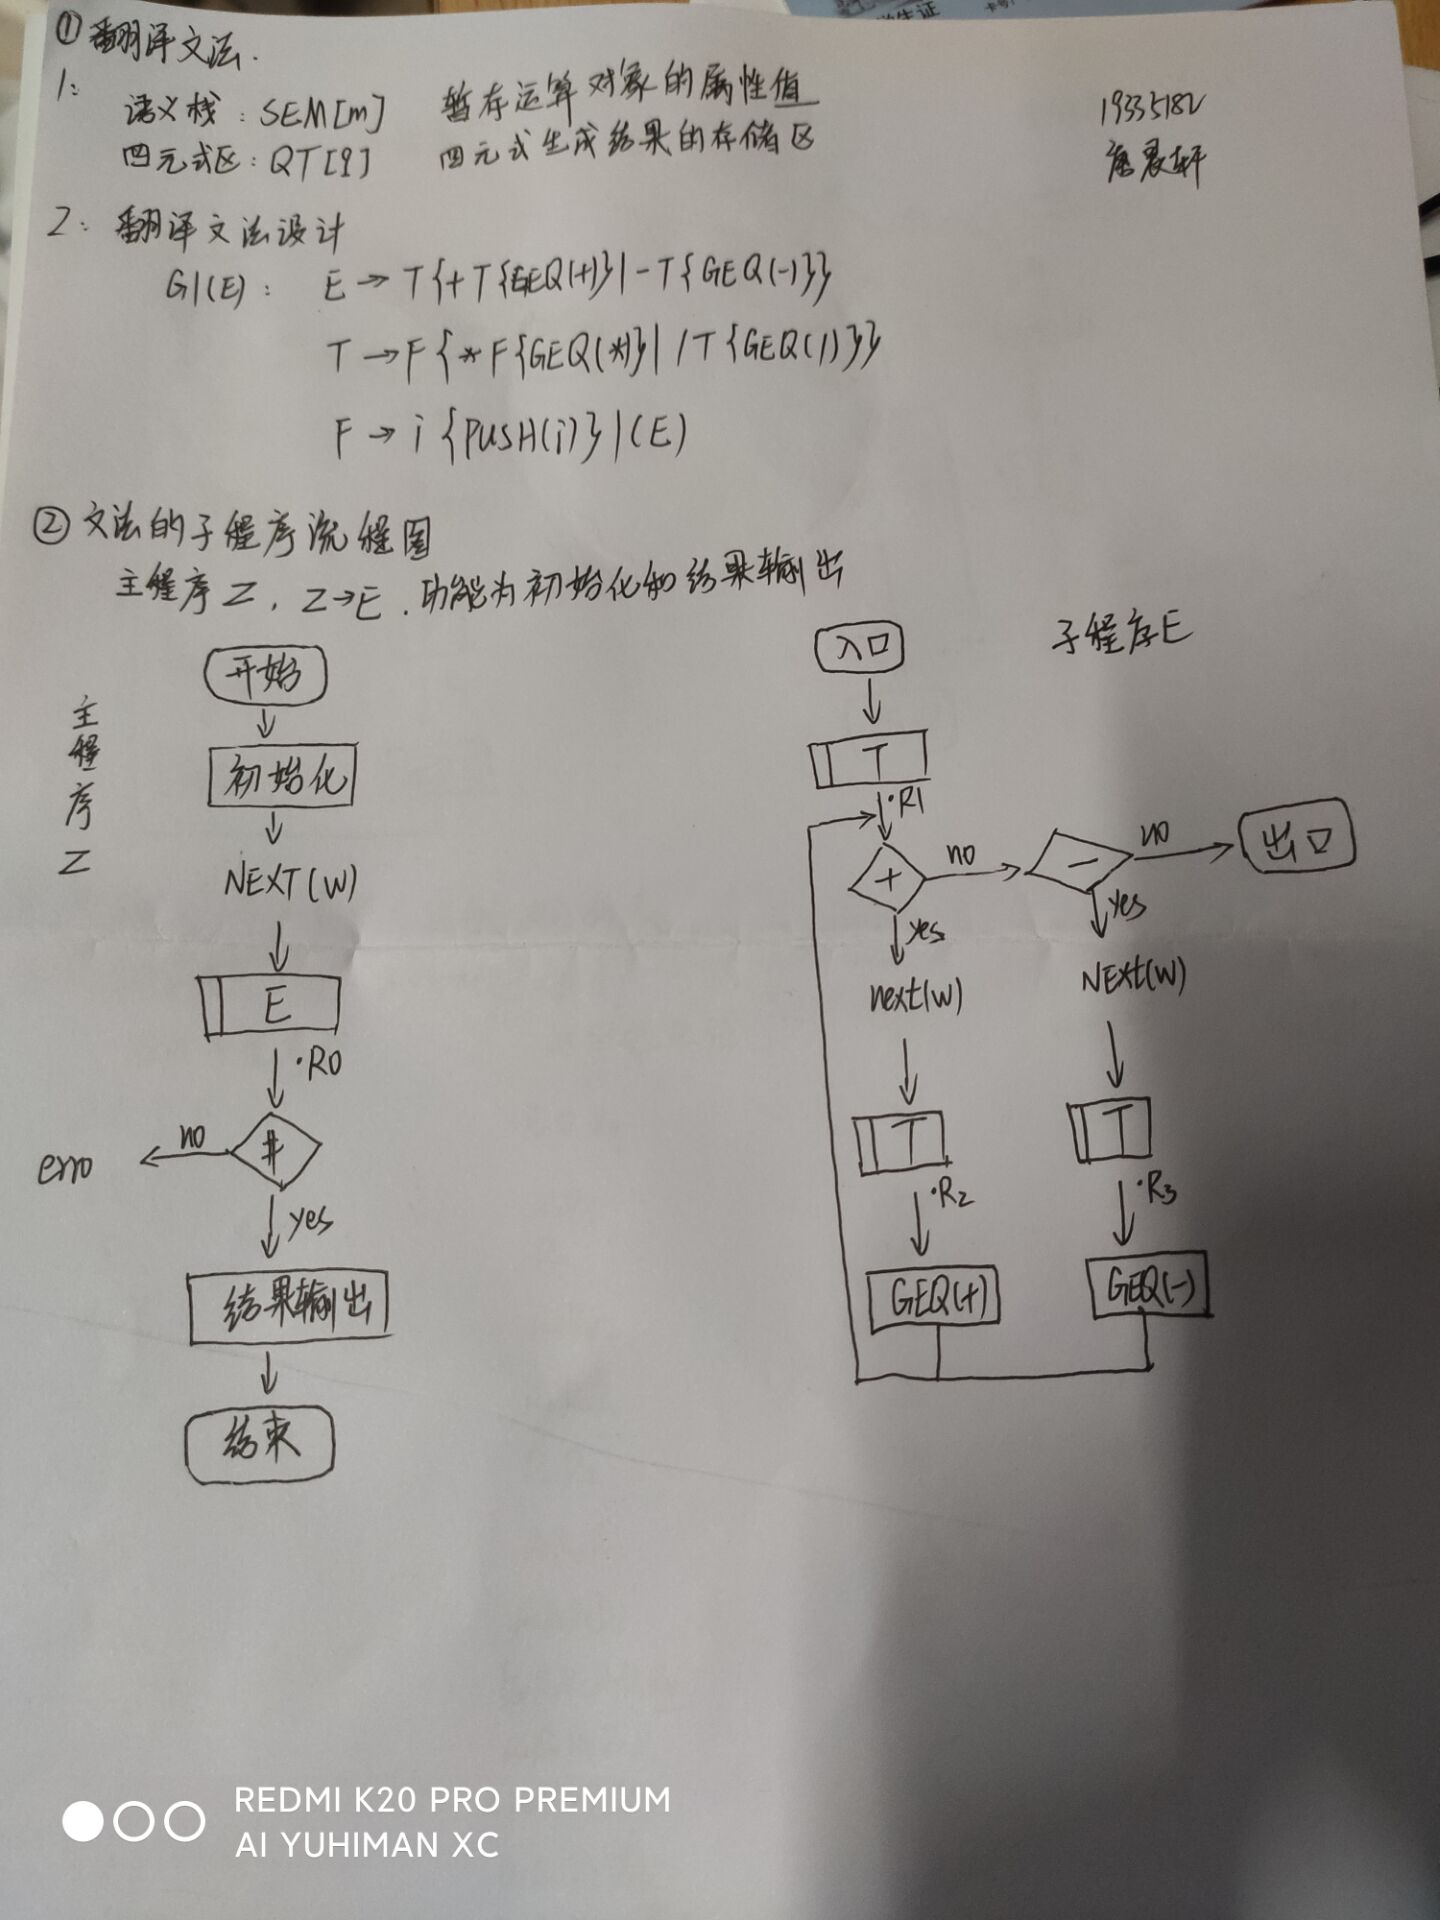 ①翻译文法.
1:
语义栈: SEM[m] 暂存运算对象的属性值
四元式区: QT[q] 四元式生成结果的存储区
19335182
2: 翻译文法设计
G1(E): E→T{+T{GEQ(+)}|-T{GEQ(-)}}
T→F{*F{GEQ(*)}|/T{GEQ(/)}}
F→i{PUSH(i)}|(E)
②文法的子程序流程图
主程序Z, Z→E. 功能为初始化和结果输出
主程序Z
开始
初始化
NEXT(W)
E
·R0
#
no
erro
yes
结果输出
结束
子程序E
入口
T
·R1
+
no
-
no
出口
yes
yes
next(w)
NExt(W)
T
T
·R2
·R3
GEQ(+)
GEQ(-)
REDMI K20 PRO PREMIUM
AI YUHIMAN XC